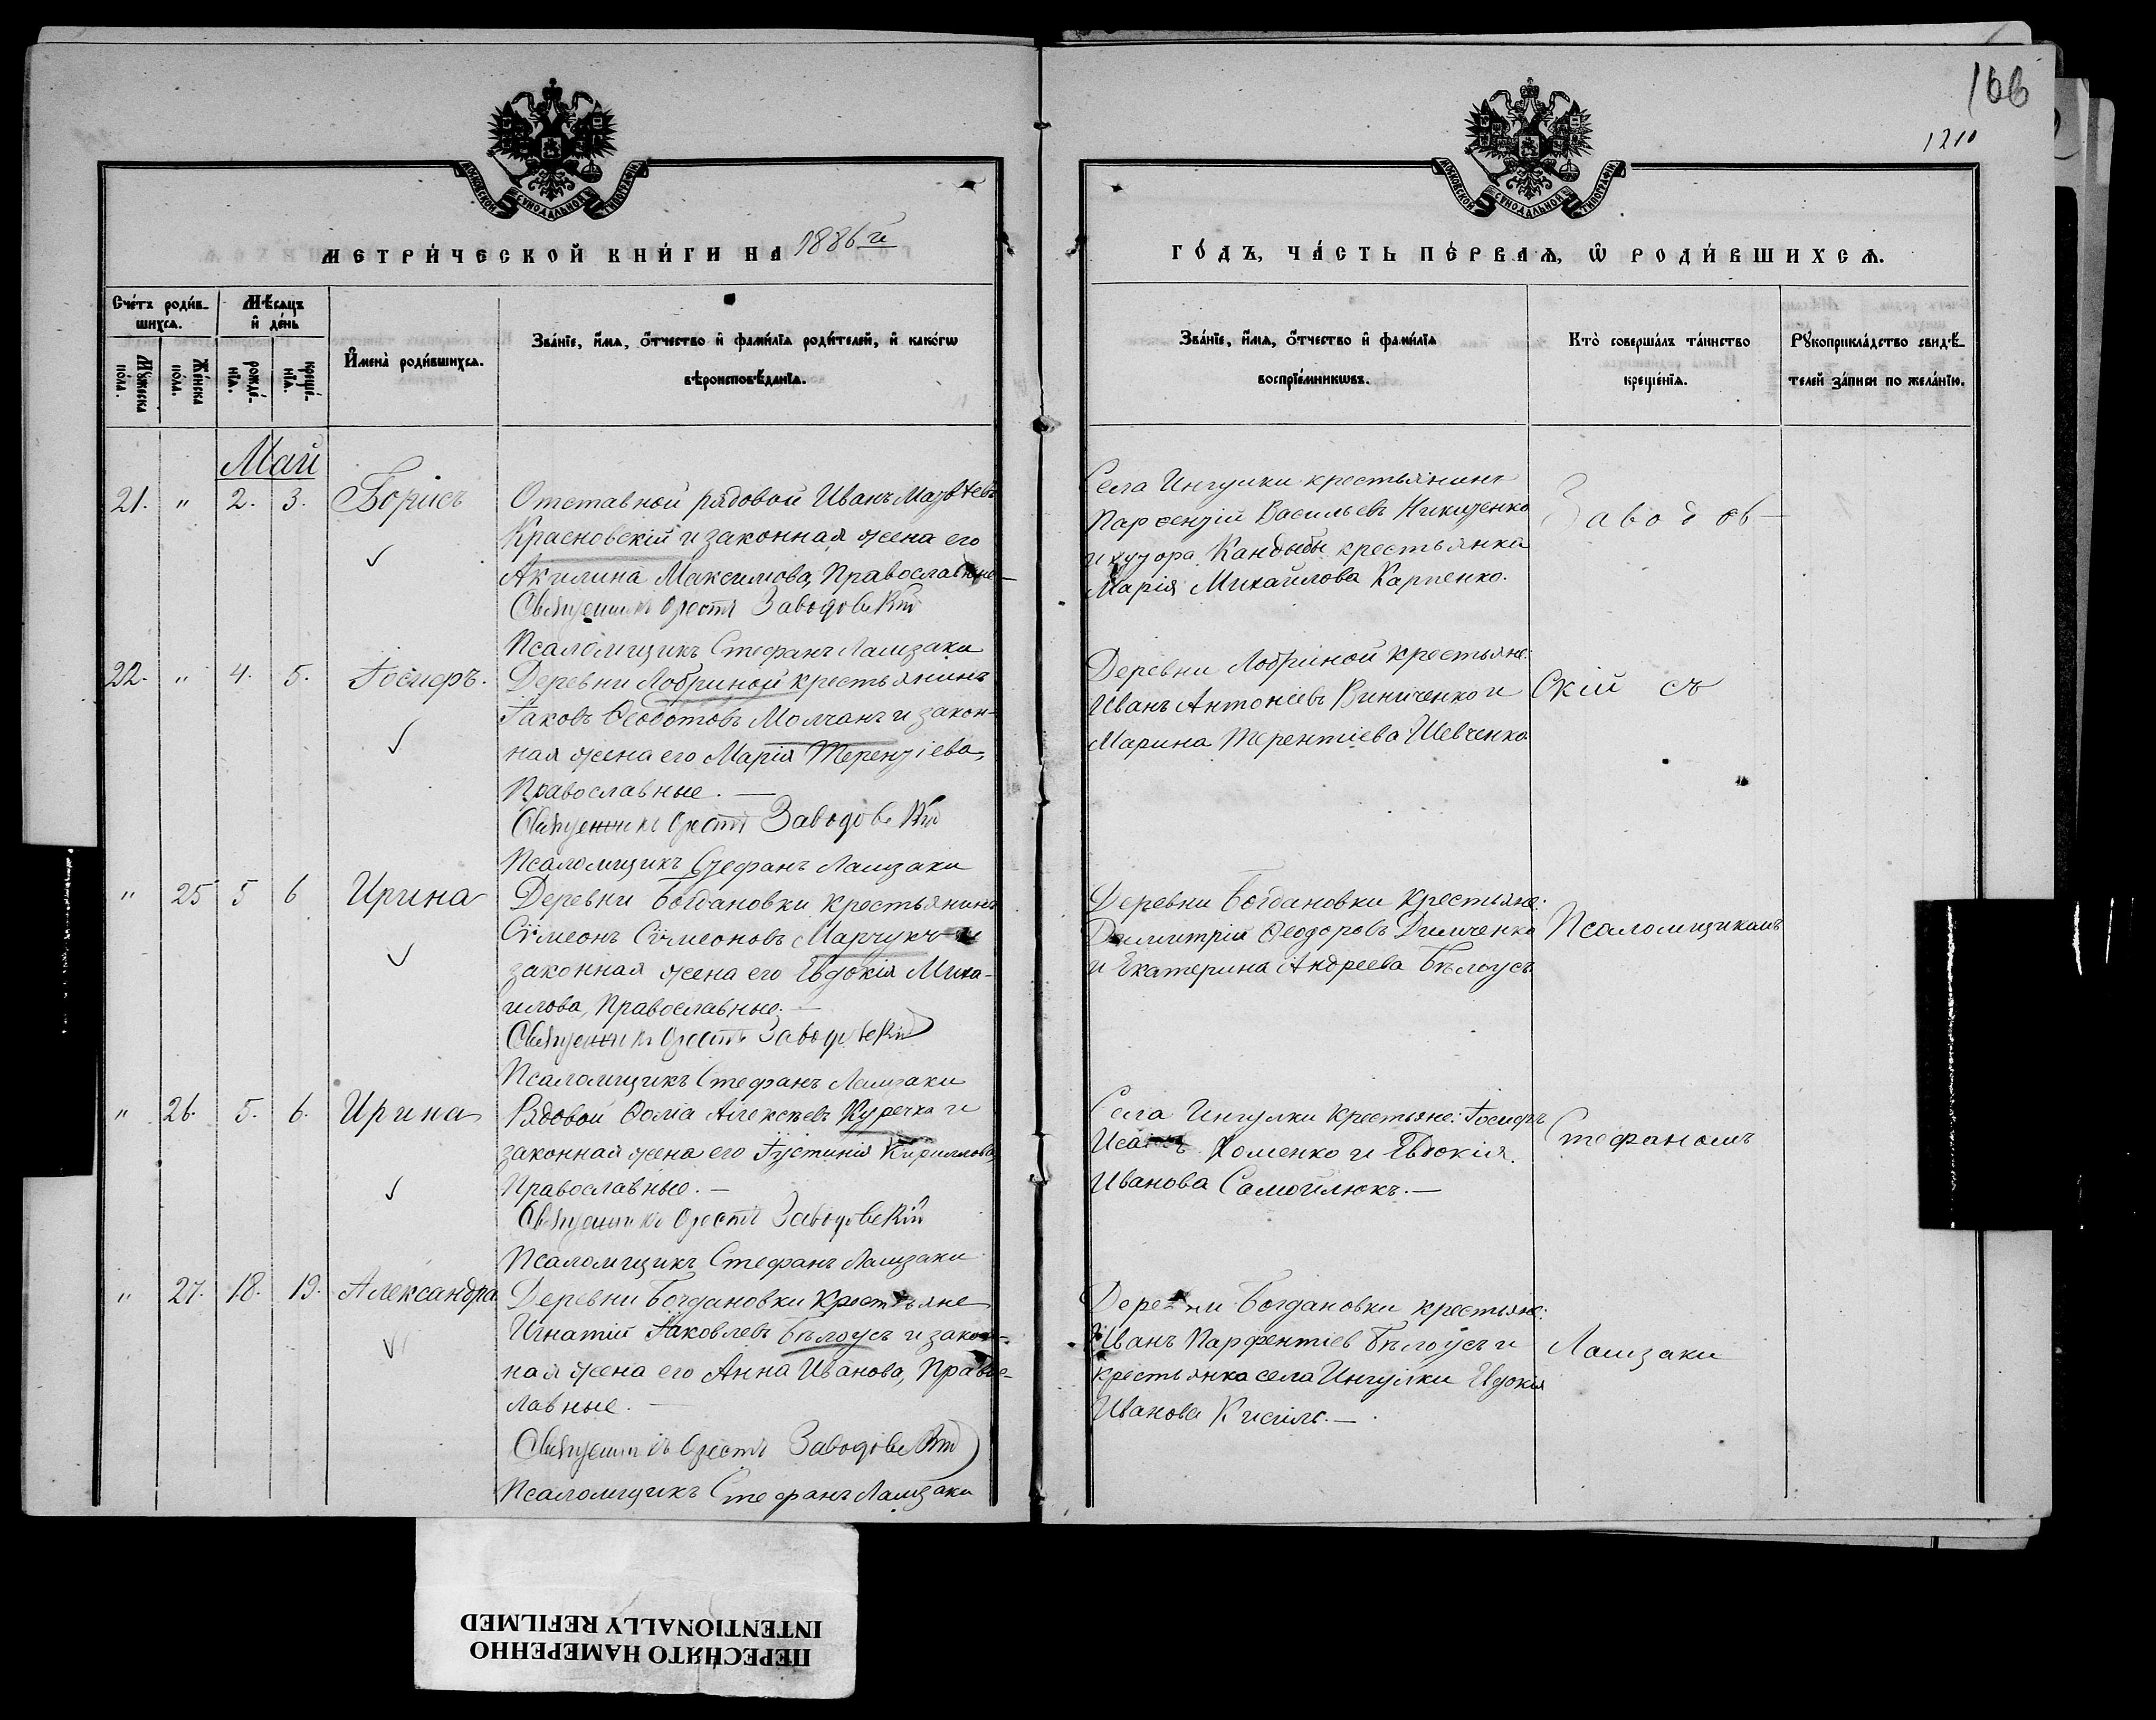 166
1210
МОСКОВСКОЙ СѴНОДАЛЬНОЙ ТИПОГРАФІИ
МОСКОВСКОЙ СѴНОДАЛЬНОЙ ТИПОГРАФІИ
МЕТРИ́ЧЕСКОЙ КНИ́ГИ НА 1886 й
ГО́ДЪ, ЧА́СТЬ ПЕ́РВАѦ, Ѡ РОДИ́ВШИХСѦ.
Сче́тъ роди́в-
шихсѧ.
Мѣ́сяцъ
и҆ де́нь
Мꙋ́жеска
по́ла.
Же́нска
по́ла.
рожде́-
нїѧ.
креще́-
нїѧ.
И҆мена̀ роди́вшихсѧ.
Зва́нїе, и҆́мѧ, ѻ҆́тчество и҆ фами́лїѧ роди́телей, и҆ како́гѡ
вѣроисповѣ́данїѧ.
Зва́нїе, и҆́мѧ, ѻ҆́тчество и҆ фами́лїѧ
воспрїе́мникѡвъ.
Кто̀ соверша́лъ та́инство
креще́нїѧ.
Рꙋкоприкла́дство свидѣ́-
телей за́писи по жела́нїю.
Май
21. " 2. 3. Борисъ
Отставной рядовой Иванъ Матвѣевъ
Красновскій и законная жена его
Акилина Максимова, Православные
Священникъ Орестъ Заводовскій
Псаломщикъ Стефанъ Лашзаки
Села Ингулки крестьянинъ
Парѳентій Васильевъ Никитенко
и хутора Кандыбы крестьянка
Марія Михайлова Карпенко.
Заводов-
22. " 4. 5. Іосифъ.
Деревни Лобриной крестьянинъ
Іаковъ Ѳеодотовъ Молчанъ и закон-
ная жена его Марія Терентіева,
Православные. —
Священникъ Орестъ Заводовскій
Псаломщикъ Стефанъ Лашзаки
Деревни Лобриной крестьяне:
Иванъ Антоніевъ Виниченко и
Марина Терентіева Шевченко
скій съ
" 25 5 6 Ирина
Деревни Богдановки крестьянинъ
Сѵмеонъ Сѵмеоновъ Марчукъ и
законная жена его Евдокія Миха-
илова, Православные. —
Священникъ Орестъ Заводовскій
Псаломщикъ Стефанъ Лашзаки
Деревни Богдановки крестьяне:
Димитрій Ѳеодоровъ Димченко
и Екатерина Андреева Бѣлоусъ
Псаломщикомъ
" 26. 5. 6. Ирина
Рядовой Ѳома Алексѣевъ Куречка и
законная жена его Іустинія Кириллова,
Православные. —
Священникъ Орестъ Заводовскій
Псаломщикъ Стефанъ Лашзаки
Села Ингулки крестьяне: Іосифъ
Хоменко и Евдокія
Иванова Самойлюкъ. —
Стефаномъ
" 27. 18. 19. Александра
Деревни Богдановки крестьяне
Игнатій Іаковлевъ Бѣлоусъ и закон-
ная жена его Анна Иванова, Право-
лавные. —
Священникъ Орестъ Заводовскій
Псаломщикъ Стефанъ Лашзаки
Деревни Богдановки крестьяне:
Иванъ Парфентіев Бѣлоусъ и
крестьянка села Ингулки Евдокія
Иванова Кисиль. —
Лашзаки
ПЕРЕСНЯТО НАМЕРЕННО
INTENTIONALLY REFILMED